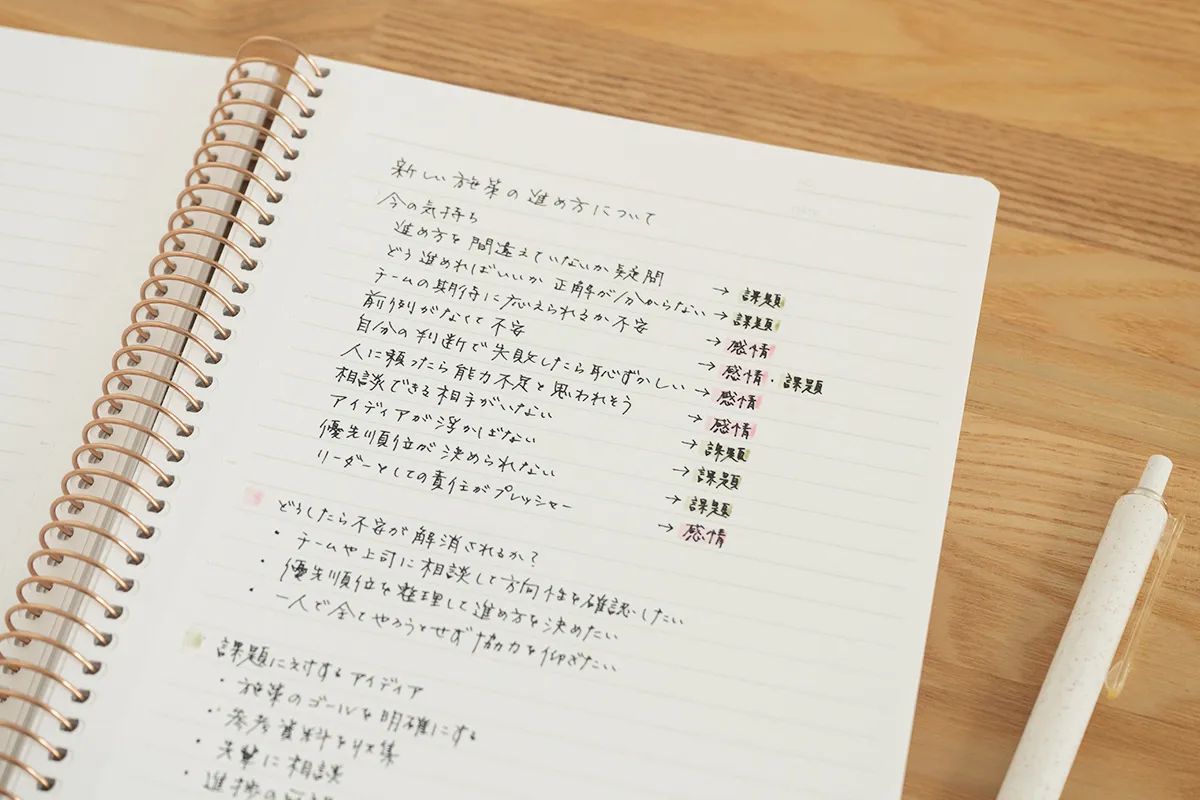 新しい施策の進め方について
今の気持ち
進め方を間違えていないか疑問 → 課題
どう進めればいいか正解が分からない → 課題
チームの期待に応えられるか不安 → 感情
前例がなくて不安 → 感情・課題
自分の判断で失敗したら恥ずかしい → 感情
人に頼ったら能力不足と思われそう → 感情
相談できる相手がいない → 課題
アイディアが浮かばない → 課題
優先順位が決められない → 課題
リーダーとしての責任がプレッシャー → 感情
どうしたら不安が解消されるか?
・チームや上司に相談して方向性を確認したい
・優先順位を整理して進め方を決めたい
・一人で全てやろうとせず協力を仰ぎたい
課題に対するアイディア
・施策のゴールを明確にする
・参考資料を収集
・先輩に相談
・進捗の